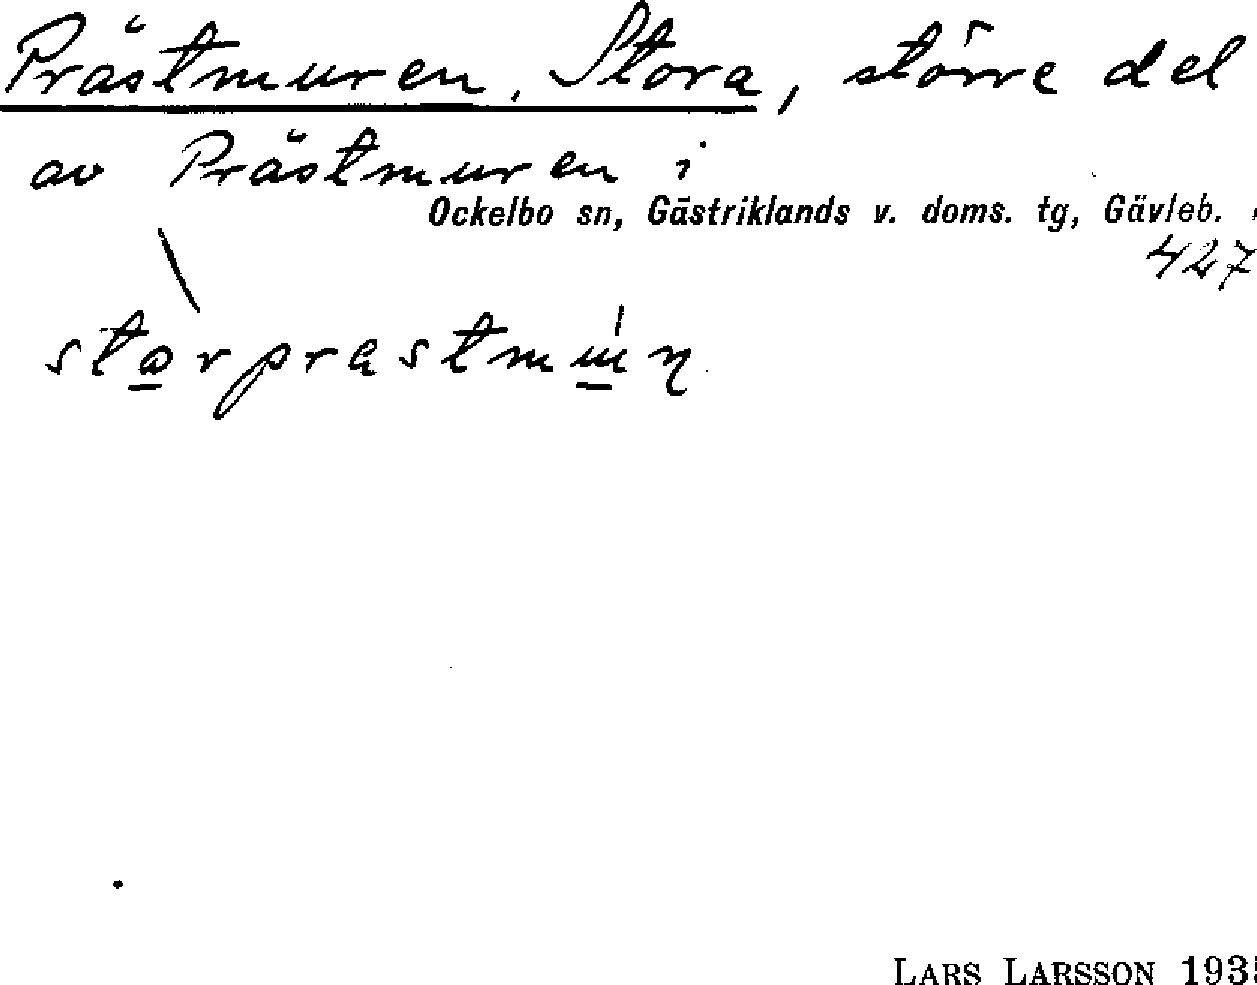 Prästmuren, Stora, större del
av Prästmuren i
Ockelbo sn, Gästriklands v. doms. tg, Gävleb.
427
LARS LARSSON